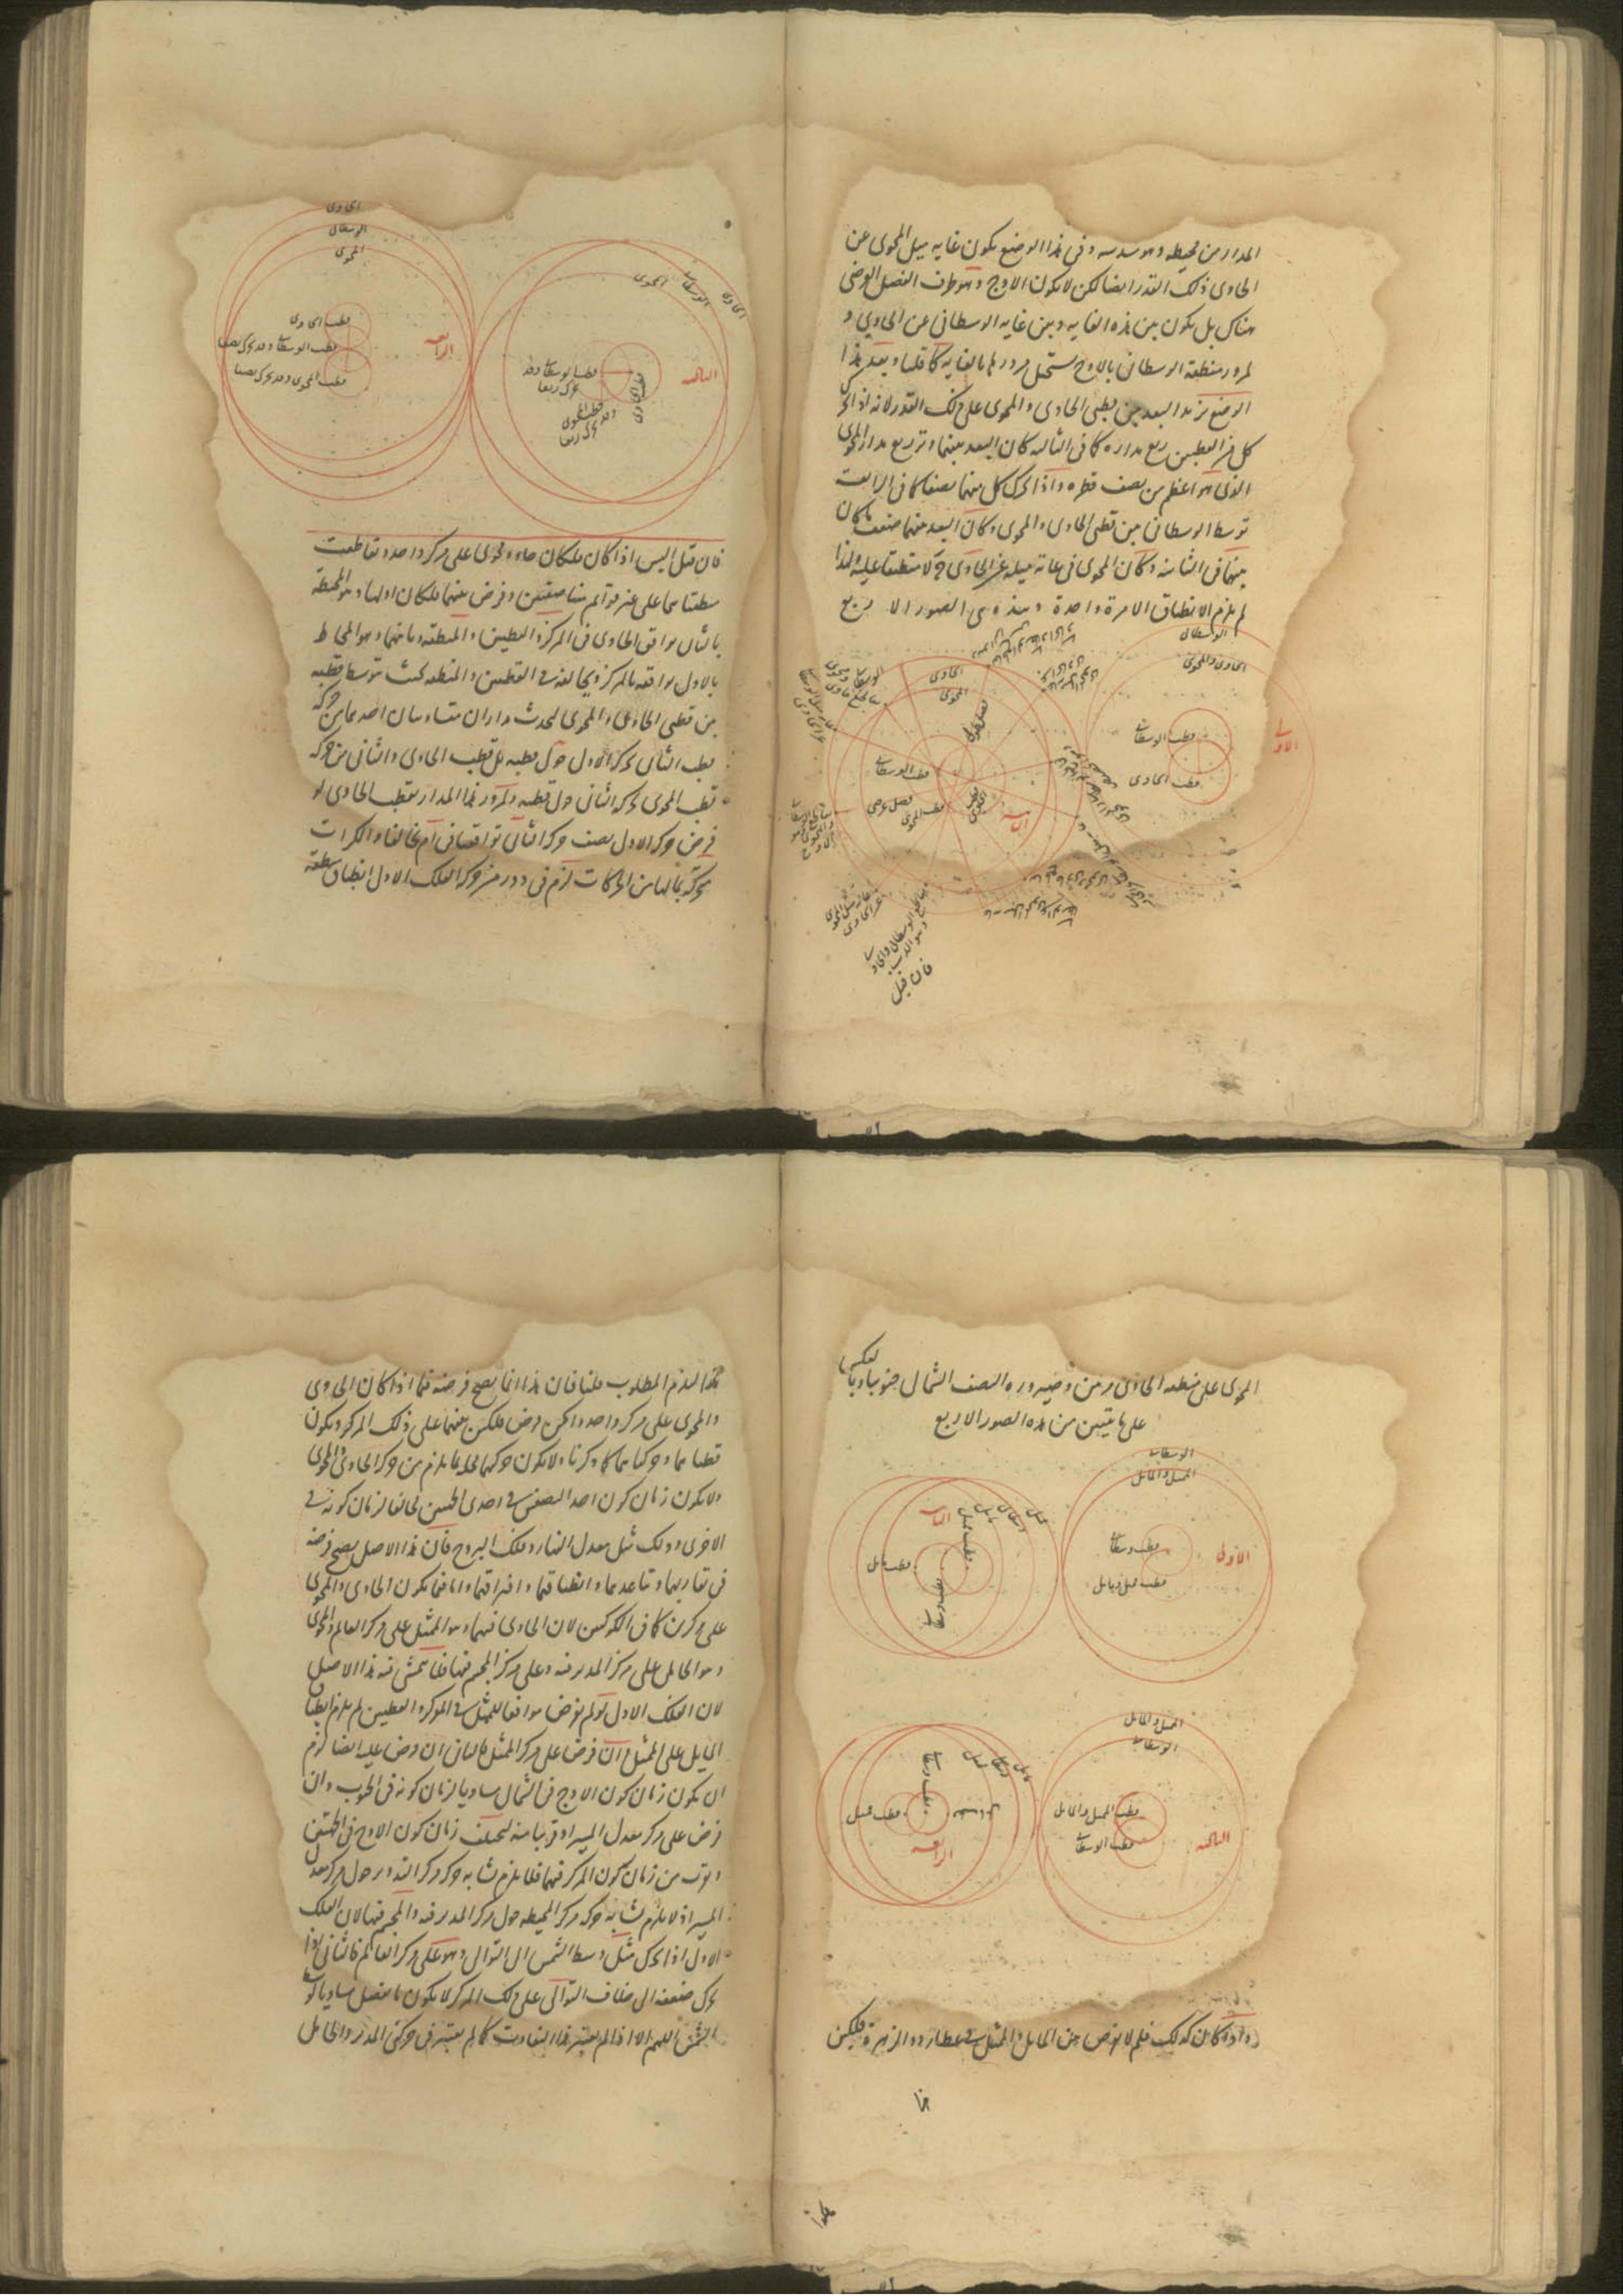 المدار من محيطه وهو سدسه وفى هذا الوضع يكون غاية ميل المحوى عن
الحاوى ذلك القدر ايضا لكن لا يكون الاوج وهو طرف الفصل العرضى
هناك بل يكون بين هذه الغاية وبين غاية الوسطانى عن الحاوى و
لمرور منطقة الوسطانى بالاوج يستحيل مرورها بالغاية كما قلنا وبعد هذا
الوضع يزيد البعد بين قطبى الحاوى والمحوى على ذلك القدر لانه اذا تحرك
كل من القطبين ربع مداره كما فى الثالثة كان البعد بينهما وتر ربع مدار المحوى
الذى هو اعظم من نصف قطره واذا تحرك كل منهما نصفا كما فى الرابعة
توسط الوسطانى بين قطبى الحاوى والمحوى وكان البعد بينهما ضعف ما كان
بينهما فى الثانية وكان المحوى فى غاية ميله عن الحاوى لا منطبقا عليه ولهذا
لم يلزم الانطباق الا مرة واحدة وهذه هى الصور الاربع
الوسطانى
الحاوى والمحوى
الاولى
قطب الوسطانى
قطب الحاوى
الحاوى
المحوى
قطب الوسطانى
فصل عرضى
قطب المحوى
الثانية
فان قيل
الحاوى
الوسطانى
المحوى
قطب الحاوى
قطب الوسطانى وقد تحرك نصفا
قطب المحوى وقد تحرك نصفا
الرابعة
المحوى
الوسطانى
الحاوى
الثالثة
قطب الوسطانى وقد
تحرك ربعا
قطب المحوى
وقد تحرك ربعا
قطب الحاوى
فان قيل اليس اذا كان فلكان حاو ومحوى على مركز واحد وتقاطعت
منطقتاهما على غير قوائم متناصفتين وفرض بينهما فلكان اولهما وهو المحيط
بالثانى يوافق الحاوى فى المركز والقطبين والمنطقة وثانيهما وهو المحاط
بالاول يوافقه بالمركز ويخالفه فى القطبين والمنطقة بحيث توسط قطبه
بين قطبى الحاوى والمحوى ليحدث مداران متساويان احدهما من حركة
قطب الثانى بحركة الاول حول قطبه بل قطب الحاوى والثانى من حركة
قطب المحوى بحركة الثانى حول قطبه ولمرور هذا المدار بقطب الحاوى لو
فرض حركة الاول نصف حركة الثانى توافقتا فى ام تخالفتا والكرات
متحركة بما لها من الحركات لزم فى دورة من حركة الفلك الاول انطباق منطقة
المحوى على منطقة الحاوى مرتين وصيرورة النصف الشمالى جنوبيا وبالعكس
على ما يتبين من هذه الصور الاربع
الوسطانى
الممثل والمايل
الاولى
قطب وسطانى
قطب ممثل ومايل
الثانية
قطب ممثل
قطب مايل
قطب وسطانى
الممثل والمايل
الوسطانى
قطب الممثل والمايل
قطب الوسطانى
الثالثة
قطب وسطانى
قطب ممثل
الرابعة
واذا كان كذلك فلم لا نفرض بين المايل والممثل فى عطارد والزهرة فلكين
هكذا ليلزم المطلوب قلنا فان هذا انما يصح فرضه فيما اذا كان الحاوى
والمحوى على مركز واحد وامكن فرض فلكين بينهما على ذلك المركز ويكون
قطباهما وحركتاهما كما ذكرنا ولا يكون حركتهما مخلة بما يلزم من حركة الحاوى والمحوى
ولا يكون زمان كون احد النصفين فى احدى الجهتين مخالفا لزمان كونه فى
الاخرى وذلك مثل معدل النهار وفلك البروج فان هذا الاصل يصح فرضه
فى تقاربهما وتباعدهما وانطباقهما وافتراقهما واما فيما يكون الحاوى والمحوى
على مركزين كما فى الكوكبين لان الحاوى فيهما وهو الممثل على مركز العالم والمحوى
وهو الحامل على مركز المدير فيه وعلى مركز المجسم فيها فلا يتمشى فيه هذا الاصل
لان الفلك الاول لو لم يفرض موافقا للممثل فى المركز والقطبين لم يلزم انطباق
المايل على الممثل وان فرض على مركز الممثل فالثانى ان فرض عليه ايضا لزم
ان يكون زمان كون الاوج فى الشمال مساويا لزمان كونه فى الجنوب وان
فرض على مركز معدل المسير او قريبا منه ليختلف زمان كون الاوج فى الجهتين
ويقرب من زمان كون المركز فيهما فلا يلزم تشابه حركة مركز التدوير حول مركز معدل
المسير اذ لا يلزم تشابه حركة مركز المحيطة حول مركز المدير فيه والمجسم فيها لان الفلك
الاول اذا تحرك مثل وسط الشمس الى التوالى وهو على مركز العالم فالثانى اذا
تحرك ضعفه الى خلاف التوالى على ذلك المركز لا يكون ما يفضل مساويا لوسط
الشمس اللهم الا اذا لم يعتبر هذا التفاوت كما لم يعتبر فى حركتى المدير والحامل